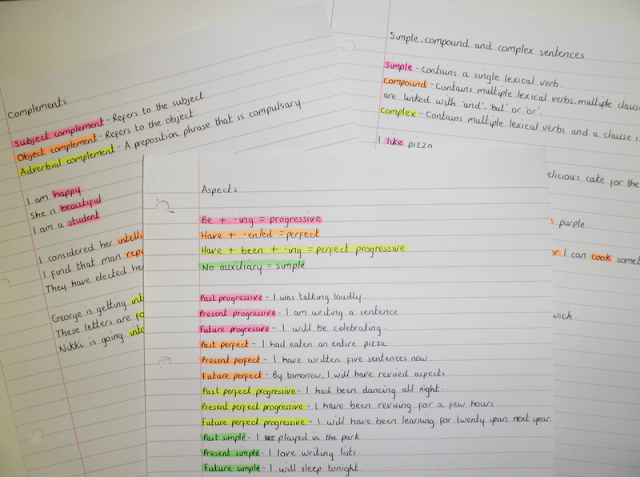 Complements
Subject complement - Refers to the subject
Object complement - Refers to the object.
Adverbial complement - A preposition phrase that is compulsary.
I am happy
She is beautiful
I am a student
I considered her intelli
I find that man rep
They have elected he
George is getting int
These letters are fo
Nikki is going into
Simple, compound and complex sentences
Simple - Contains a single lexical verb.
Compound - Contains multiple lexical verbs, multiple clause
are linked with 'and', 'but' or 'or'.
Complex - Contains multiple lexical verbs and a clause i
I like pizza
elicious cake for the
purple.
or I can cook somet
wich.
Aspects
Be + -ing = progressive
Have + -en/ed = perfect
Have + been + -ing = perfect progressive
No auxiliary = simple
Past progressive - I was talking loudly
Present progressive - I am writing a sentence.
Future progressive - I will be celebrating.
Past perfect - I had eaten an entire pizza
Present perfect - I have written five sentences now
Future perfect - By tomorrow, I will have revised aspects
Past perfect progressive - I had been dancing all night.
Present perfect progressive - I have been revising for a few hours
Future perfect progressive - I will have been learning for twenty years next year
Past simple - I played in the park.
Present simple - I love writing lists.
Future simple - I will sleep tonight.